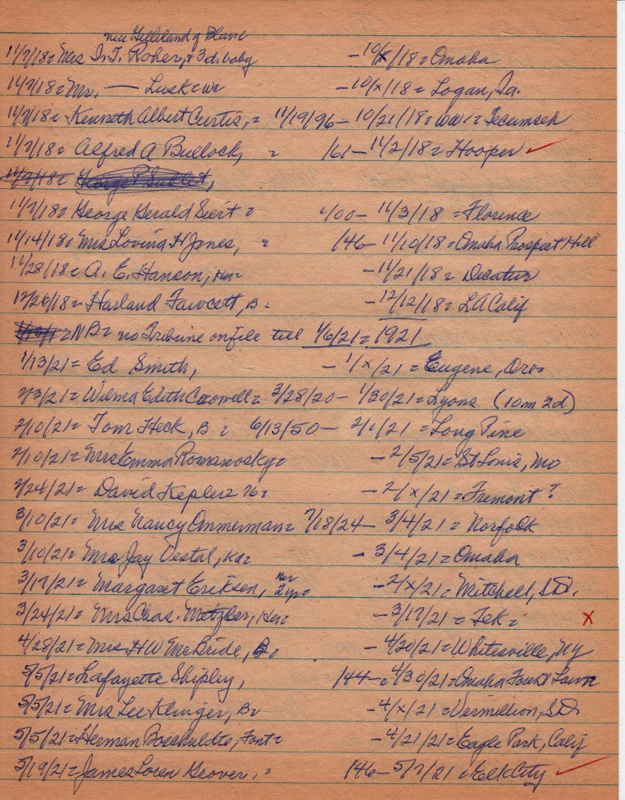 nee Gilliland of Blair
11/7/18= Mrs I. T. Roher, + 3d. baby -10/x/18= Omaha
11/7/18= Mr. — Luse -10/x/18= Logan, Ia.
11/7/18= Kenneth Albert Curtis, = 11/19/96- 10/21/18= WW1= Tecumseh
11/7/18= Alfred A Bullock, = /61- 11/2/18= Hooper ✓
11/7/18= George P
11/7/18= George Gerald Siert= /00- 11/3/18= Florence
11/14/18= Mrs Lovina H Jones, = /46- 11/10/18= Omaha Prospect Hill
11/28/18= A. E. Hanson, -11/21/18= Decatur
12/26/18= Harland Fawcett, B= -12/12/18= LA Calif
NB= no Tribune on file till 1/6/21= 1921
1/13/21= Ed Smith, -1/x/21= Eugene, Ore=
2/3/21= Wilma Edith = 3/28/20- 1/30/21= Lyons (10m 2d)
2/10/21= Tom Heck, B= 6/13/50- 2/1/21= Long Pine
2/10/21= Mrs Emma Romanosky= -2/5/21= St Louis, Mo
2/24/21= David Keplers -2/x/21= Fremont?
3/10/21= Mrs Nancy Ammerman= 7/18/24- 3/4/21= Norfolk
3/10/21= Mrs Jay Vestal, -3/4/21= Omaha
3/17/21= Margaret Eriksen, -2/x/21= Mitchell, S.D.
3/24/21= Mrs Chas. Metzler, -3/17/21= Tek= X
4/28/21= Mrs HW McBride, B= -4/20/21= Whitesville, NY
5/5/21= Lafayette Shipley, /44- 4/30/21= Omaha Forest Lawn
5/5/21= Mrs Lee Klinger, B= -4/x/21= Vermillion, S.D.
5/5/21= Herman -4/21/21= Eagle Park, Calif
5/19/21= James Loren Grover, = /46- 5/7/21= Elk City ✓